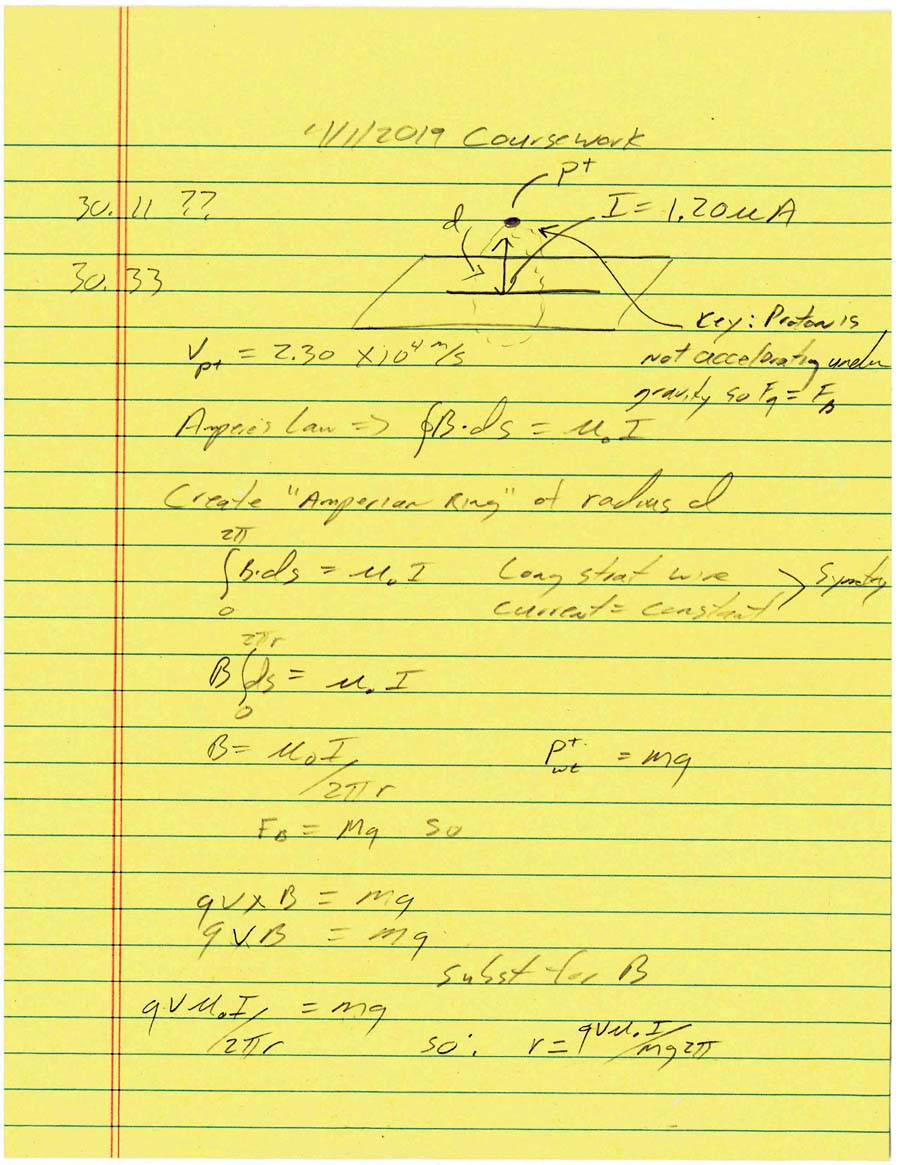 1/1/2019 Coursework
P+
30.11 ??
d
I = 1.20 µA
30.33
Key: Proton is
not accelerating under
gravity so Fg = FB
Vp+ = 2.30 × 10⁴ m/s
Ampere's Law => ∮B·ds = µ₀I
Create "Amperian Ring" of radius d
2π
∫B·ds = µ₀I Long strat wire > Symmetry
0 current = constant
2πr
B∫ds = µ₀I
0
B = µ₀I/2πr P+wt = mg
FB = mg so
qv×B = mg
qvB = mg
subst for B
qvµ₀I/2πr = mg
so: r = qvµ₀I/mg2π